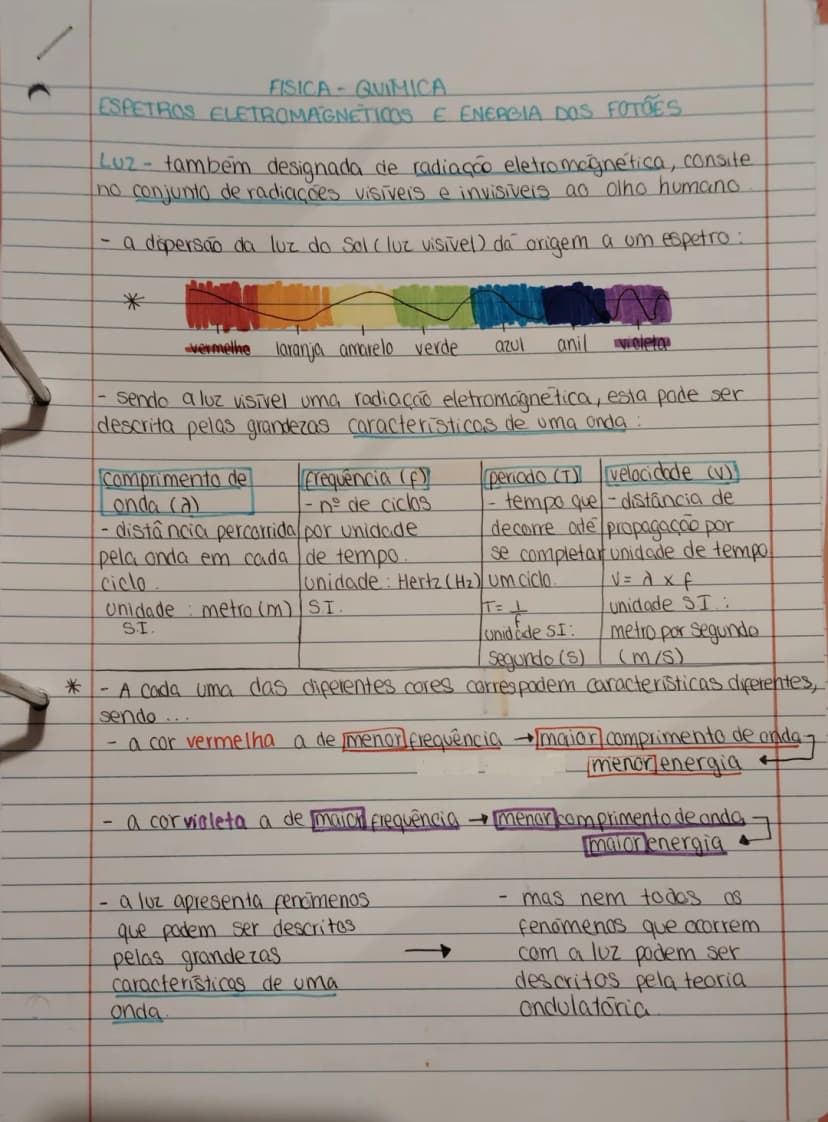 FISICA - QUIMICA
ESPETROS ELETROMAGNÉTICOS E ENERGIA DOS FOTÕES
Luz - também designada de radiação eletromagnética, consite
no conjunto de radiações visíveis e invisíveis ao olho humano.
- a dipersão da luz do Sol (luz visível) dá origem a um espetro:
*
vermelho laranja amarelo verde azul anil violeta
- sendo a luz visível uma radiação eletromagnética, esta pode ser
descrita pelas grandezas características de uma onda:
comprimento de
onda (λ)
- distância percorrida
pela onda em cada
ciclo.
unidade: metro (m)
S.I.
frequência (f)
- nº de ciclos
por unidade
de tempo.
unidade: Hertz (Hz)
S.I.
período (T)
- tempo que
decorre até
se completar
um ciclo.
T= 1
f
unidade SI:
segundo (s)
velocidade (v)
- distância de
propagação por
unidade de tempo
v= λ x f
unidade SI:
metro por segundo
(m/s)
* - A cada uma das diferentes cores correspodem características diferentes,
sendo...
- a cor vermelha a de menor frequência → maior comprimento de onda
menor energia
- a cor violeta a de maior frequência → menor comprimento de onda
maior energia
- a luz apresenta fenómenos
que podem ser descritos
pelas grandezas
características de uma
onda.
→
- mas nem todos os
fenómenos que ocorrem
com a luz podem ser
descritos pela teoria
ondulatória.